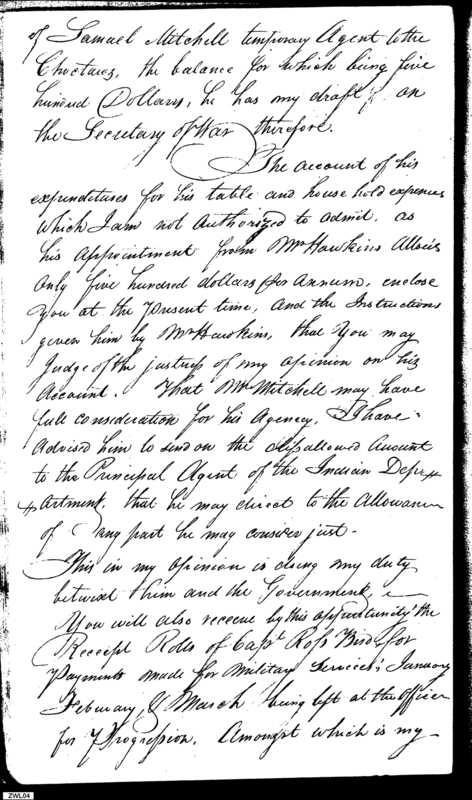 of Samuel Mitchell temporary Agent to the
Choctaws, the balance for which being five
hundred Dollars, he has my draft on
the Secretary of War therefore.
The account of his
expenditures for his table and house hold expences
which I am not Authorized to admit. as
his appointment from Mr Hawkins Allows
only five hundred dollars per Annum, enclose
you at the present time, and the Instructions
given him by Mr Hawkins, that You may
Judge of the justness of my opinion on his
Account. That Mr Mitchell may have
full consideration for his Agency, I have
Advised him to send on the disallowed Amount
to the Principal Agent of the Indian Depr
artment, that he may direct to the Allowance
of any part he may consider just-
This in my opinion is doing my duty
betwixt him and the Government,
You will also receive by this opportunity the
Receipt Rolls of Capt Ross Bird, for
Payments made for Military Services; January
Feburary, & March being left at the Officer
for Progression, Amongst which is my
ZWL04